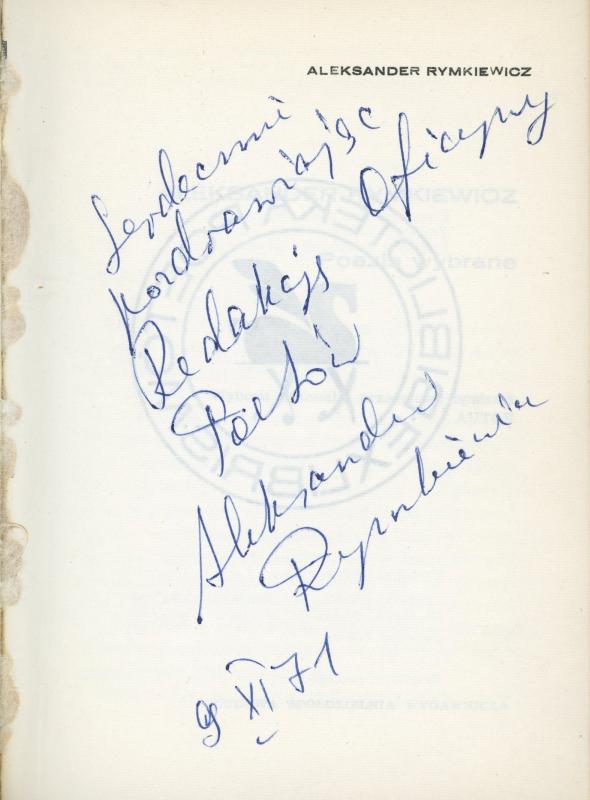 ALEKSANDER RYMKIEWICZ
Serdecznie
pozdrawiając
Redakcję Oficyny
Poetów
Aleksander
Rymkiewicz
9 XI 71
ALEKSANDER RYMKIEWICZ
Poezje wybrane
BIBLIOTEKA
EXLIBRIS
LUDOWA SPÓŁDZIELNIA WYDAWNICZA